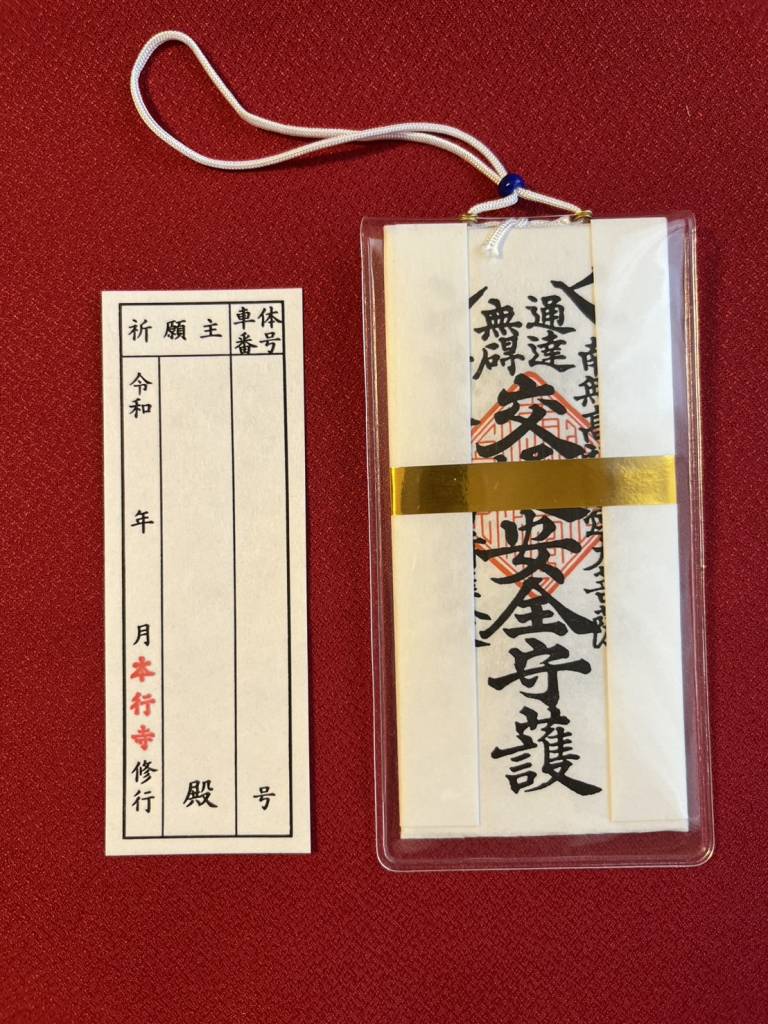 祈願主
車体
番号
令和 年 月本行寺修行
殿
号
通達
無碍
交
安全守護